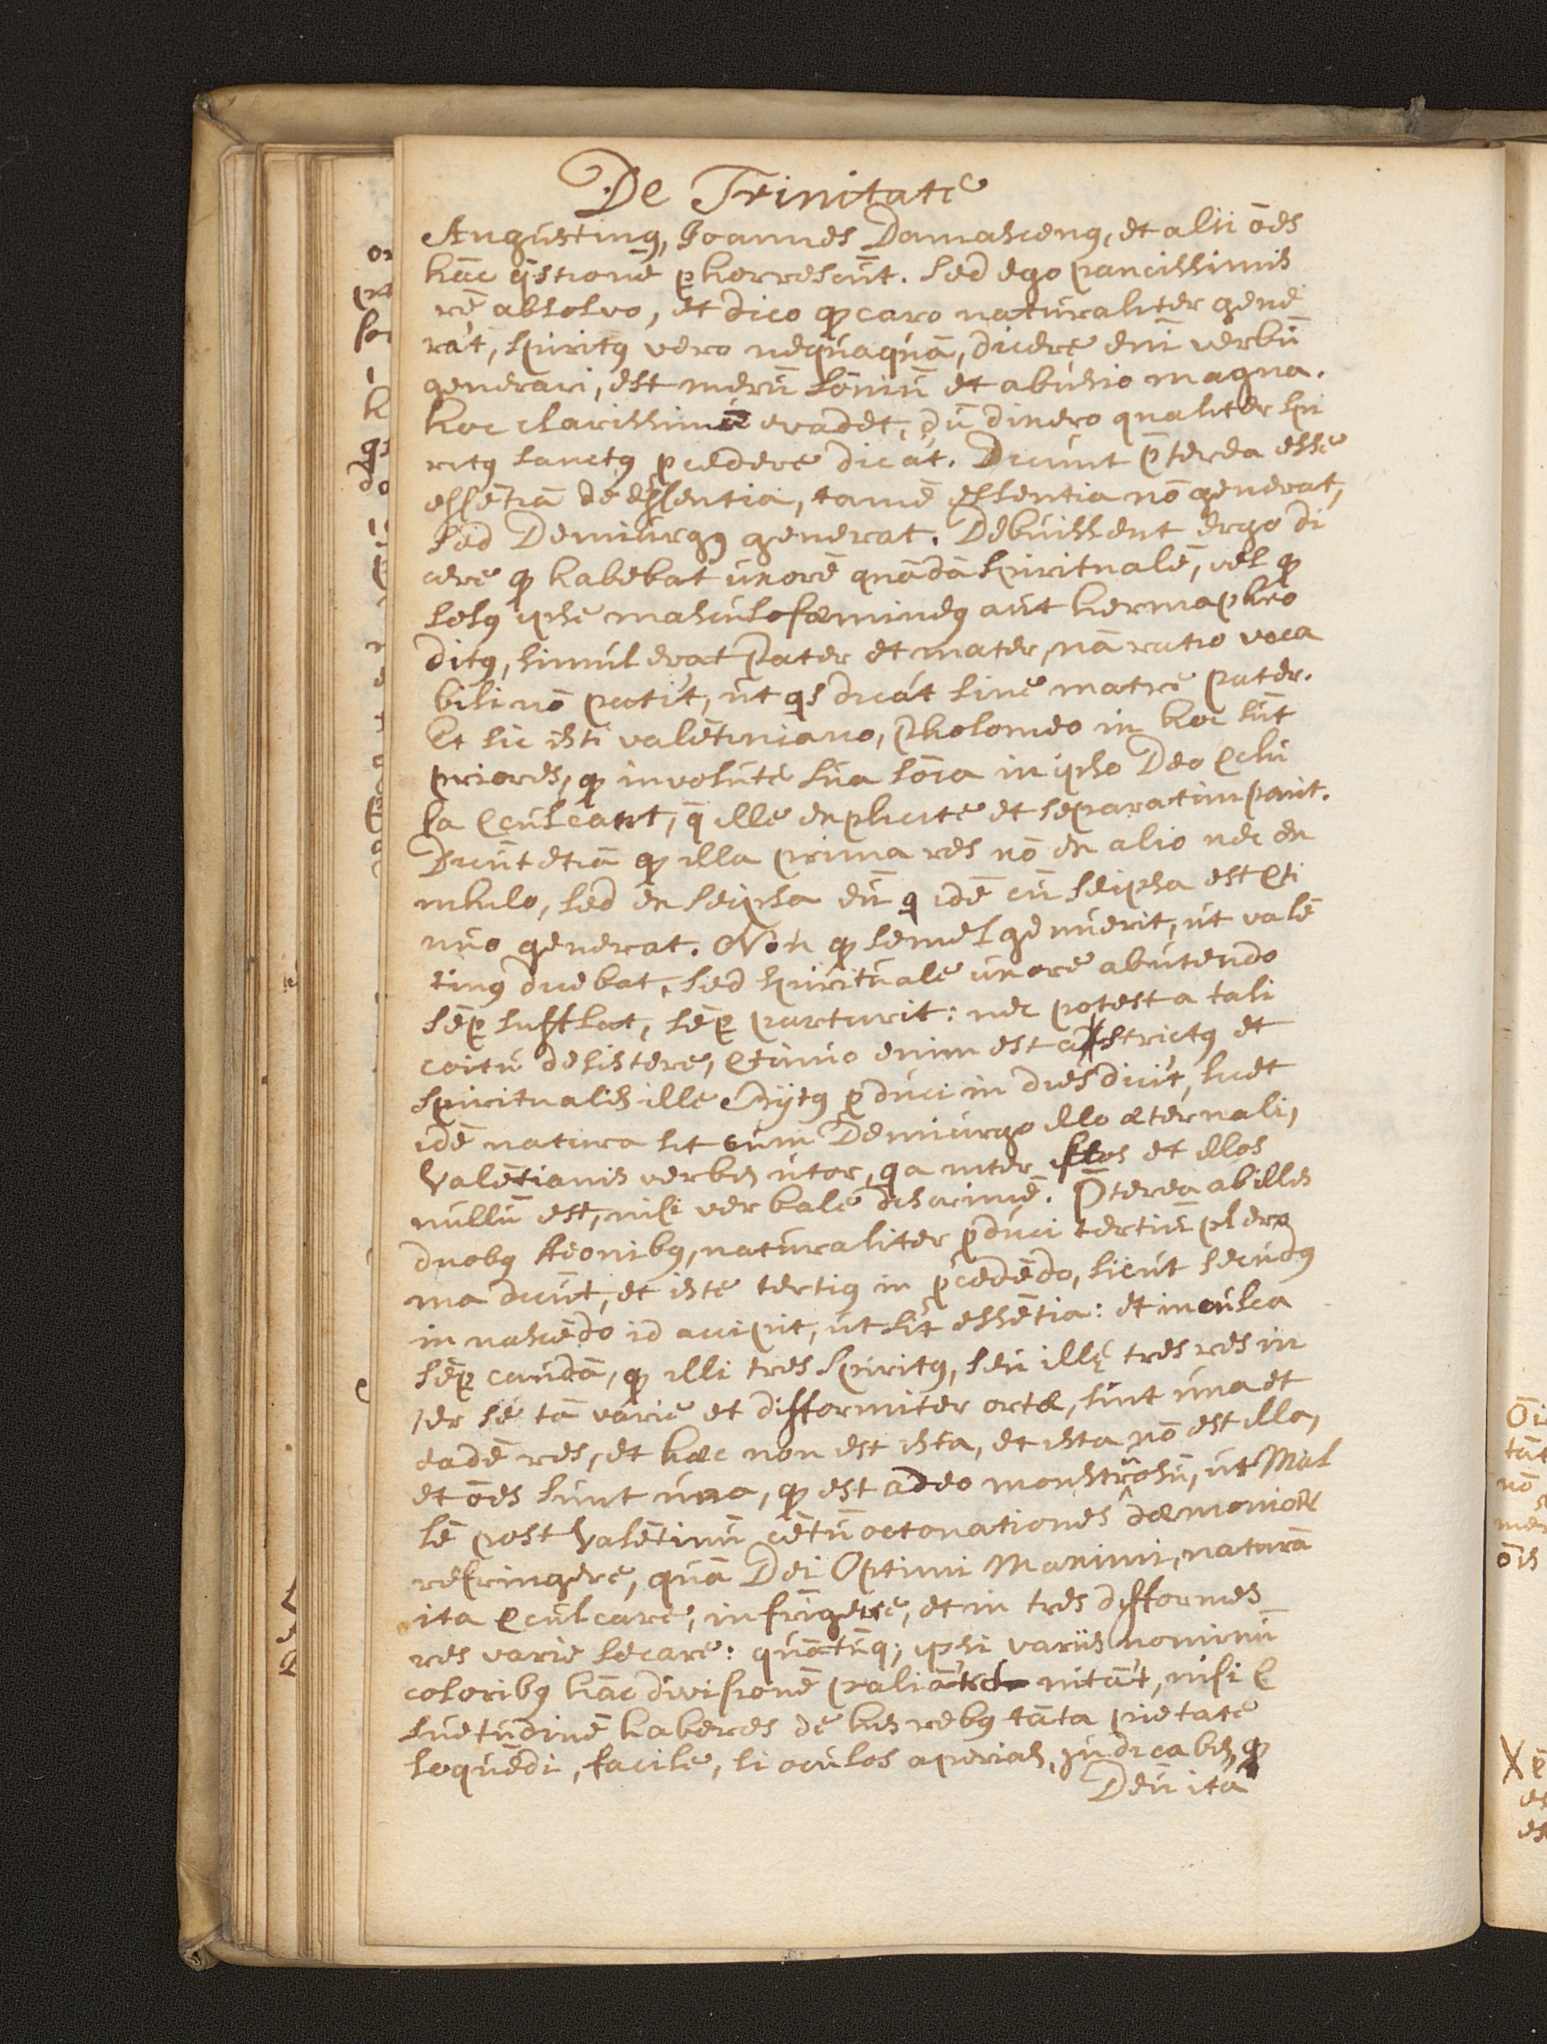 De Trinitate
Augustinꝰ, Joannes Damascenꝰ, et alii ōēs
hāc q̄stionē ꝑhorrescūt. Sed ego paucissimis
rē absolvo, et dico ꝙ caro naturaliter gene
rat, spiritꝰ vero nequaquā, dicere eni verbū
generari, est merū sōniū et abusio magna.
hoc clarissimū evadet, dū dixero qualiter spi
ritꝰ sanctꝰ ꝓcedere dicāt. Dicunt p̄terea esse
essētiā de essentia, tamē essentia nō generat,
sed Demiurgꝰ generat. Debuissent ergo di
cere ꝙ habebat uxorē quādā spiritualē, vel ꝙ
solꝰ ipse masculofœmineꝰ aut hermaphro
ditꝰ, simul erat pater et mater, nā ratio voca
buli nō patit, ut qs dicat sine matre pater.
Et sic isti valētiniano, Ptholomeo in hoc sūt
priores, ꝙ involute sua sōīa in ipso Deo ↄclu
sa ↄculcant, q̄ ille explicite et separatim ponit.
Dicūt etiā ꝙ illa prima res nō ex alio nec ex
nihilo, sed ex seipsa eū q idē cū seipsa est ↄti
nuo generat. Non ꝙ semel genuerit, ut valē
tinꝰ dicebat, sed spirituale uxore abutendo
sēꝑ sufflat, sēꝑ parturit: nec potest a tali
coitu desistere, ↄtinuo enim est astrictꝰ et
spiritualis ille ... ꝓduci in dies dicit, licet
idē natura sit cum Demiurgo illo æternali,
Valētianis verbis utor, qa inter istos et illos
nullū est, nisi verbale discrimē. P̄terea ab illis
duobꝰ Aeonibꝰ, naturaliter ꝓduci tertiū plero
ma dicūt, et iste tertiꝰ in ꝓcedēdo, sicut secūdꝰ
in nascēdo id accipit, ut sit essētia: et inculca
sēꝑ caudā, ꝙ illi tres spiritꝰ, seu illę tres res in
ter se tā varie et difformiter ortæ, sint una et
eadē res, et hæc non est ista, et ista nō est illa,
et ōēs sunt una, ꝙ est adeo monstrosū, ut Mal
lē post Valētinū cētū octonationes dæmoniorꝝ
refringere, quā Dei Optimi Maximi, naturā
ita ↄculcare, infrīgere, et in tres difformes
res varie secare: quātūq; ipsi variis nominū
coloribꝰ hāc divisionē paliare nitāt, nisi ↄ
suetudinē haberes de his rebꝰ tāta pietate
loquēdi, facile, si oculos aperias, judicabis, ꝙ
Deū ita